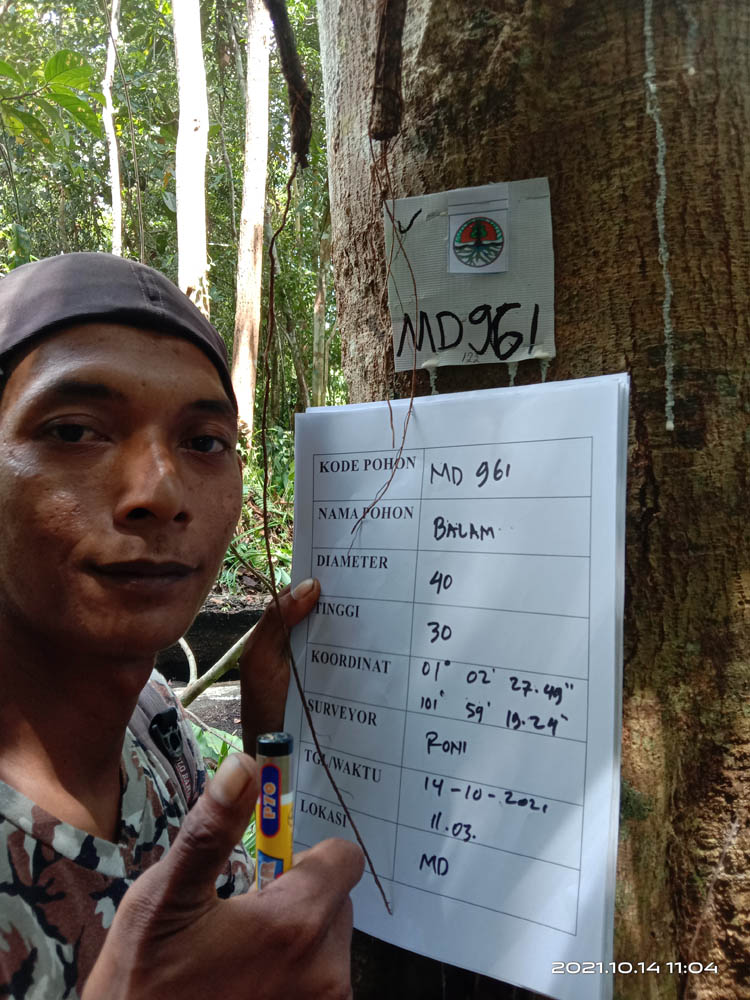 MD961
122
KODE POHON MD 961
NAMA POHON BALAM
DIAMETER 40
TINGGI 30
KOORDINAT 01° 02' 27.49"
101° 59' 19.24"
SURVEYOR RONI
TGL/WAKTU 14-10-2021
11.03.
LOKASI MD
P70
2021.10.14 11:04